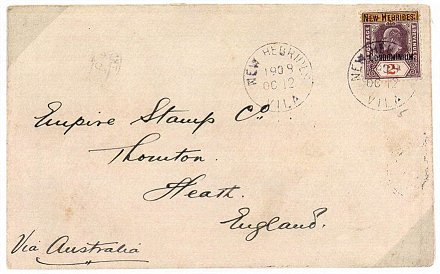 NEW HEBRIDES.
CONDOMINIUM
POSTAGE
2d
NEW HEBRIDES
1908
OC 12
VILA
OC 12
VILA
Empire Stamp Co
Thornton
Heath.
England.
Via Australia